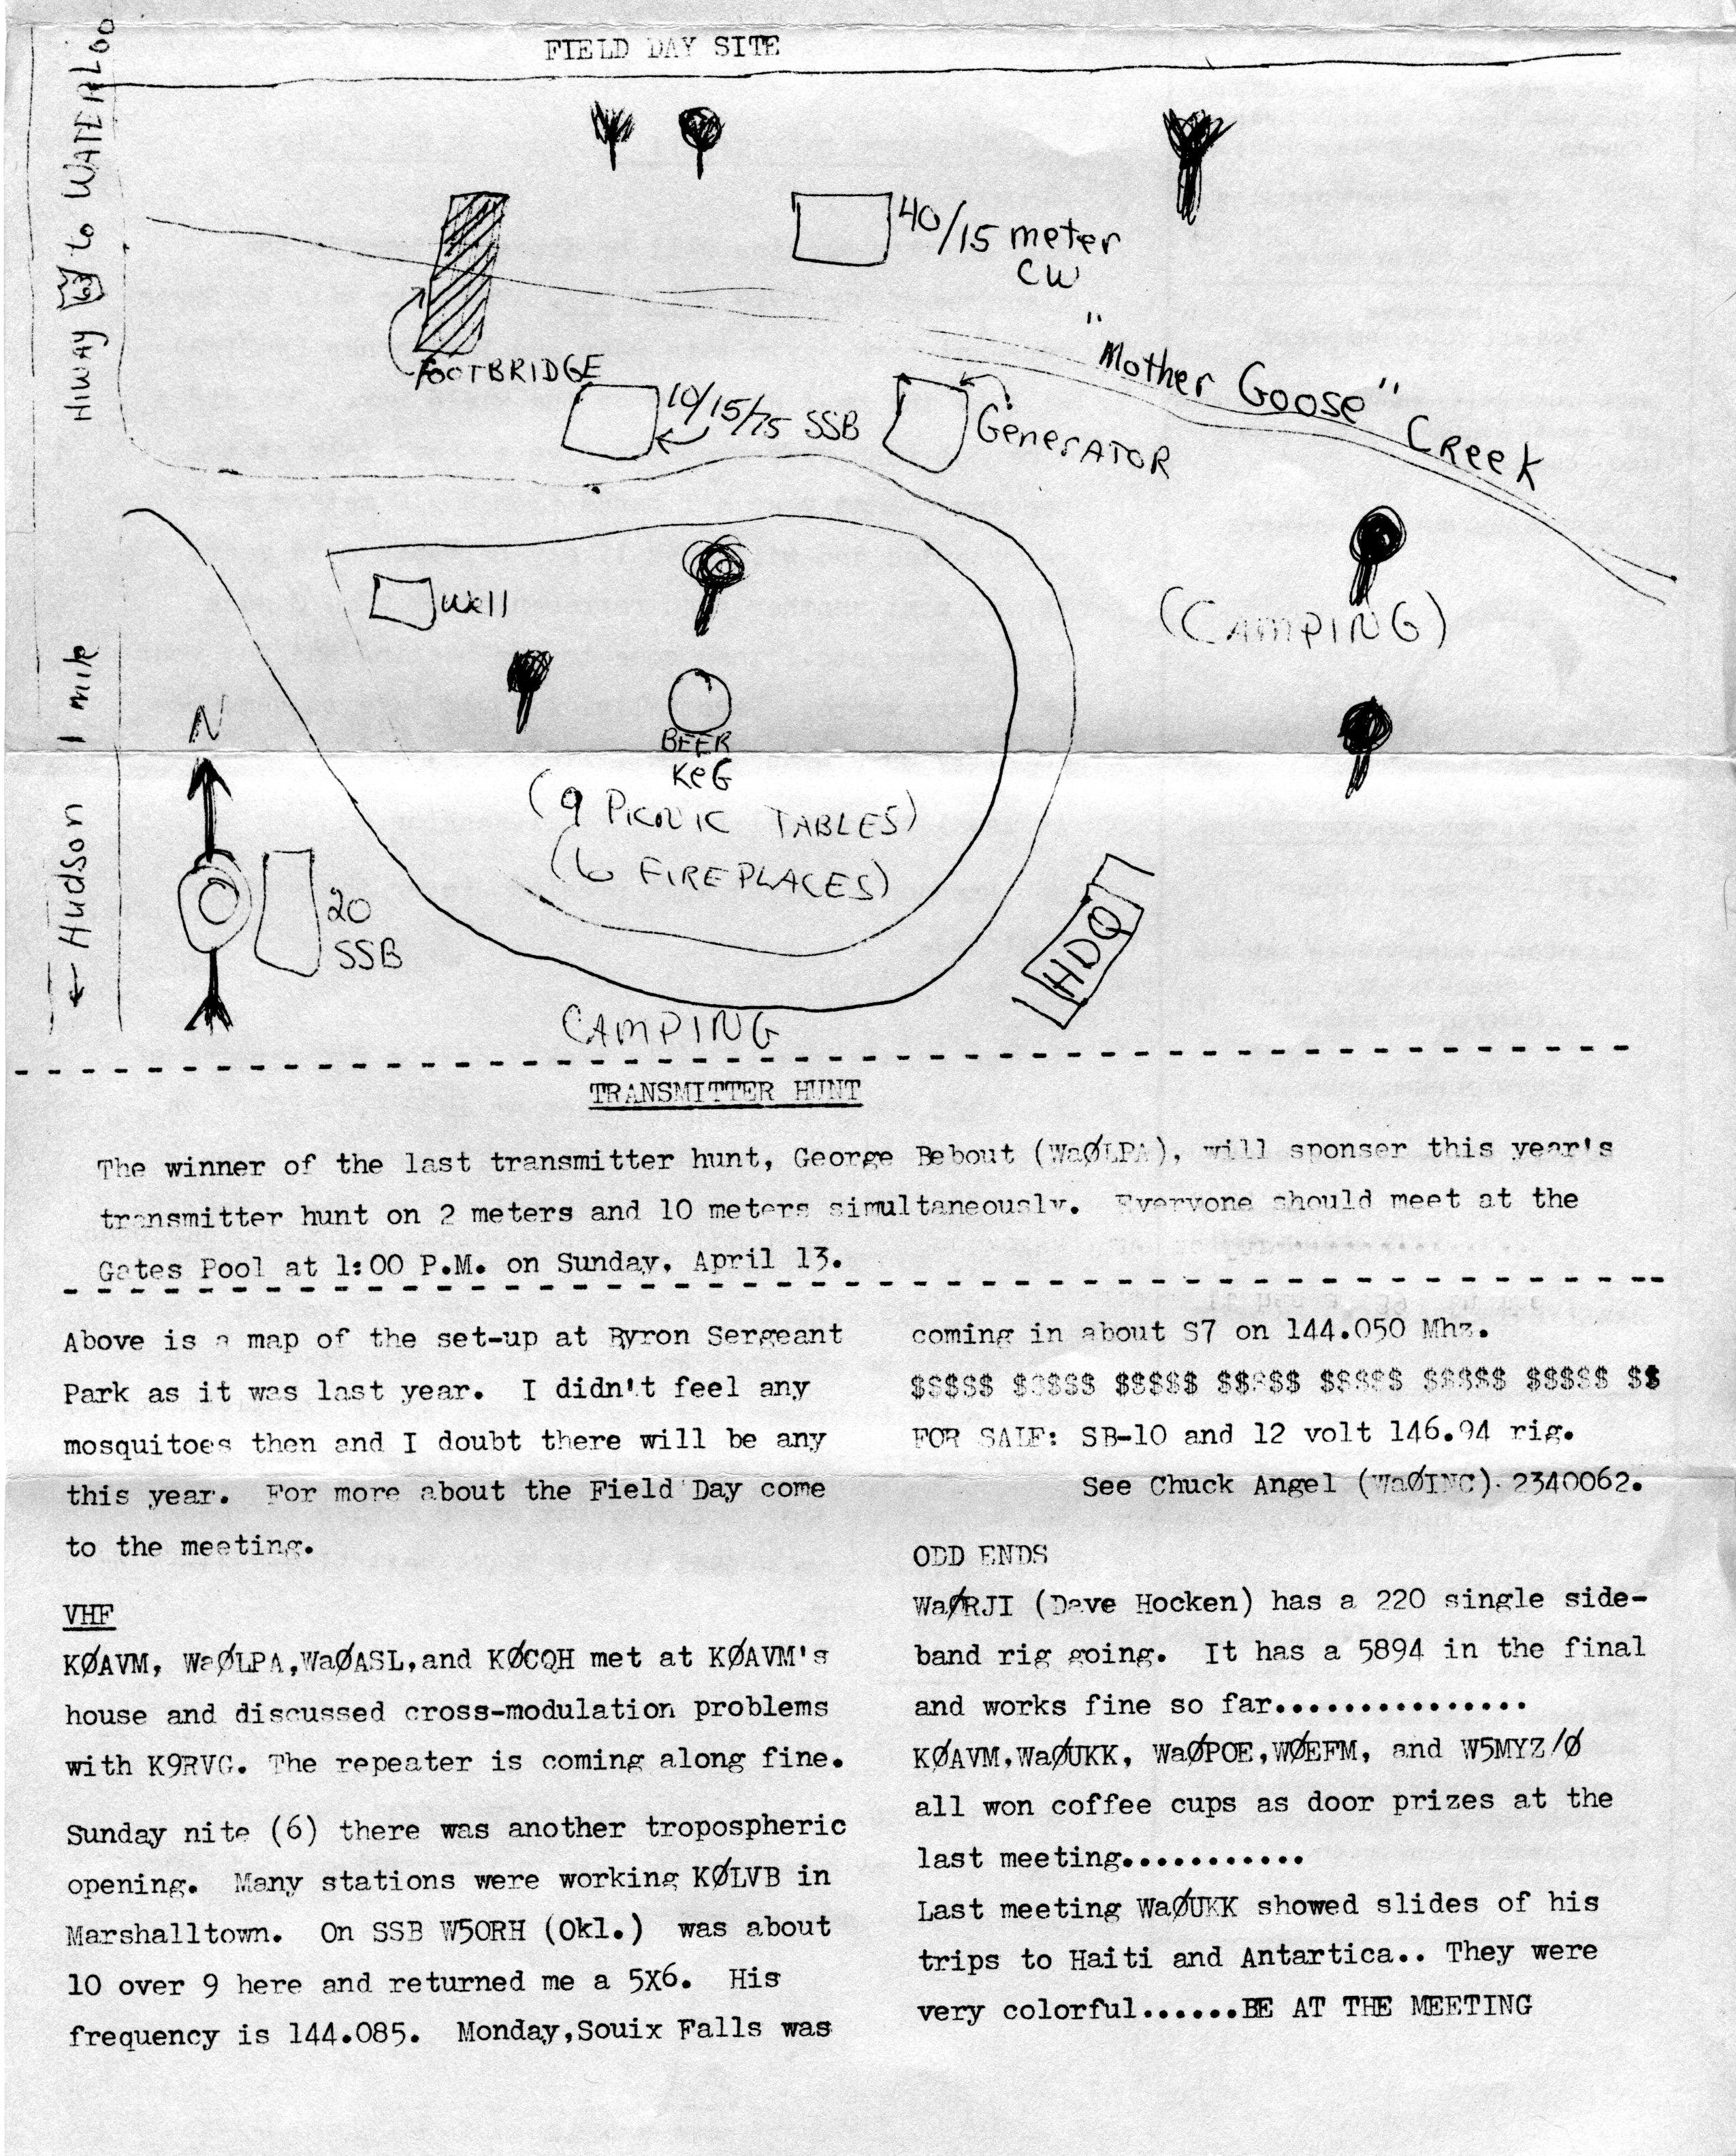 FIELD DAY SITE
Hiway 63 to WATERLOO
40/15 meter
CW
FOOTBRIDGE
"Mother Goose" Creek
10/15/75 SSB
Generator
Well
(CAMPING)
1 mile
N
BEER
KEG
(9 PICNIC TABLES)
(6 FIREPLACES)
← Hudson
20
SSB
HDQ
CAMPING
TRANSMITTER HUNT
The winner of the last transmitter hunt, George Bebout (WaØLPA), will sponser this year's
transmitter hunt on 2 meters and 10 meters simultaneously. Everyone should meet at the
Gates Pool at 1:00 P.M. on Sunday, April 13.
Above is a map of the set-up at Byron Sergeant
Park as it was last year. I didn't feel any
mosquitoes then and I doubt there will be any
this year. For more about the Field Day come
to the meeting.
VHF
KØAVM, WaØLPA,WaØASL,and KØCQH met at KØAVM's
house and discussed cross-modulation problems
with K9RVG. The repeater is coming along fine.
Sunday nite (6) there was another tropospheric
opening. Many stations were working KØLVB in
Marshalltown. On SSB W5ORH (Okl.) was about
10 over 9 here and returned me a 5X6. His
frequency is 144.085. Monday,Souix Falls was
coming in about S7 on 144.050 Mhz.
$$$$$ $$$$$ $$$$$ $$$$$ $$$$$ $$$$$ $$$$$ $$
FOR SALE: SB-10 and 12 volt 146.94 rig.
See Chuck Angel (WaØINC). 2340062.
ODD ENDS
WaØRJI (Dave Hocken) has a 220 single side-
band rig going. It has a 5894 in the final
and works fine so far...............
KØAVM,WaØUKK, WaØPOE,WØEFM, and W5MYZ/Ø
all won coffee cups as door prizes at the
last meeting...........
Last meeting WaØUKK showed slides of his
trips to Haiti and Antartica.. They were
very colorful......BE AT THE MEETING